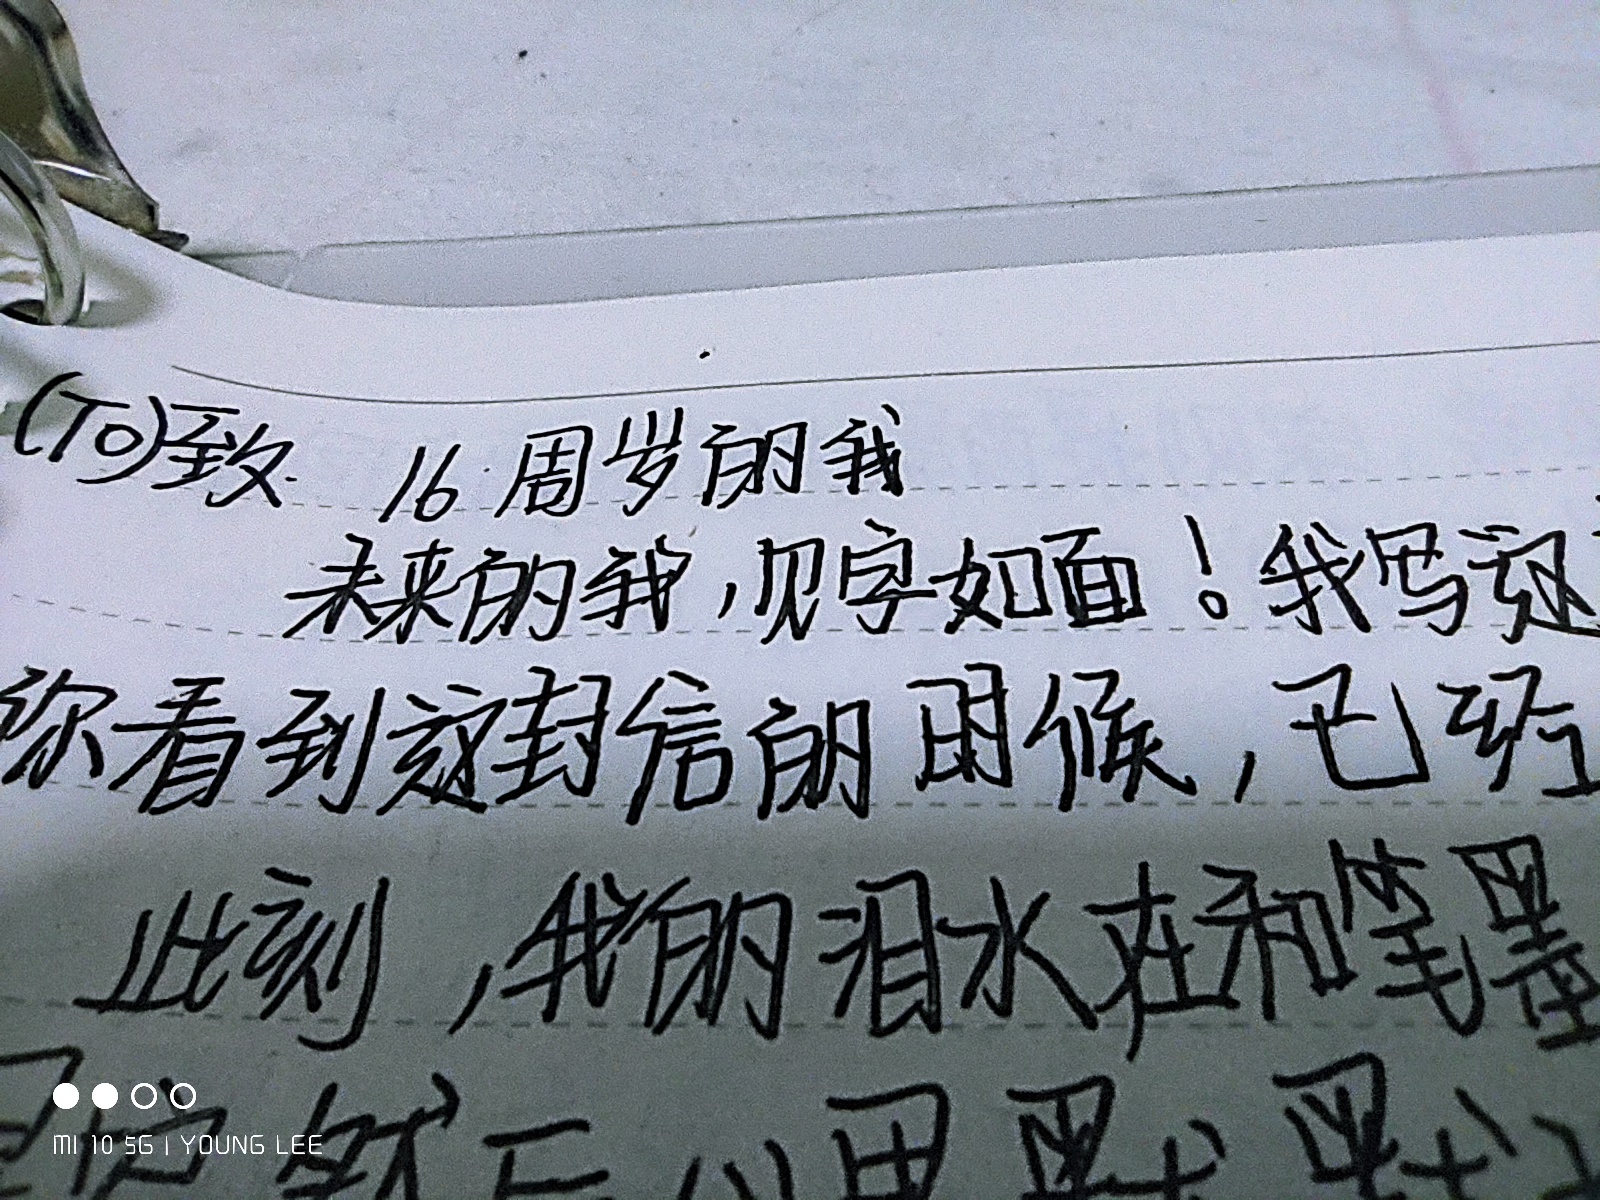 (To)致 16周岁的我
未来的我,见字如面!我写这
你看到这封信的时候,已经
此刻,我的泪水在和笔墨
MI 10 5G | YOUNG LEE